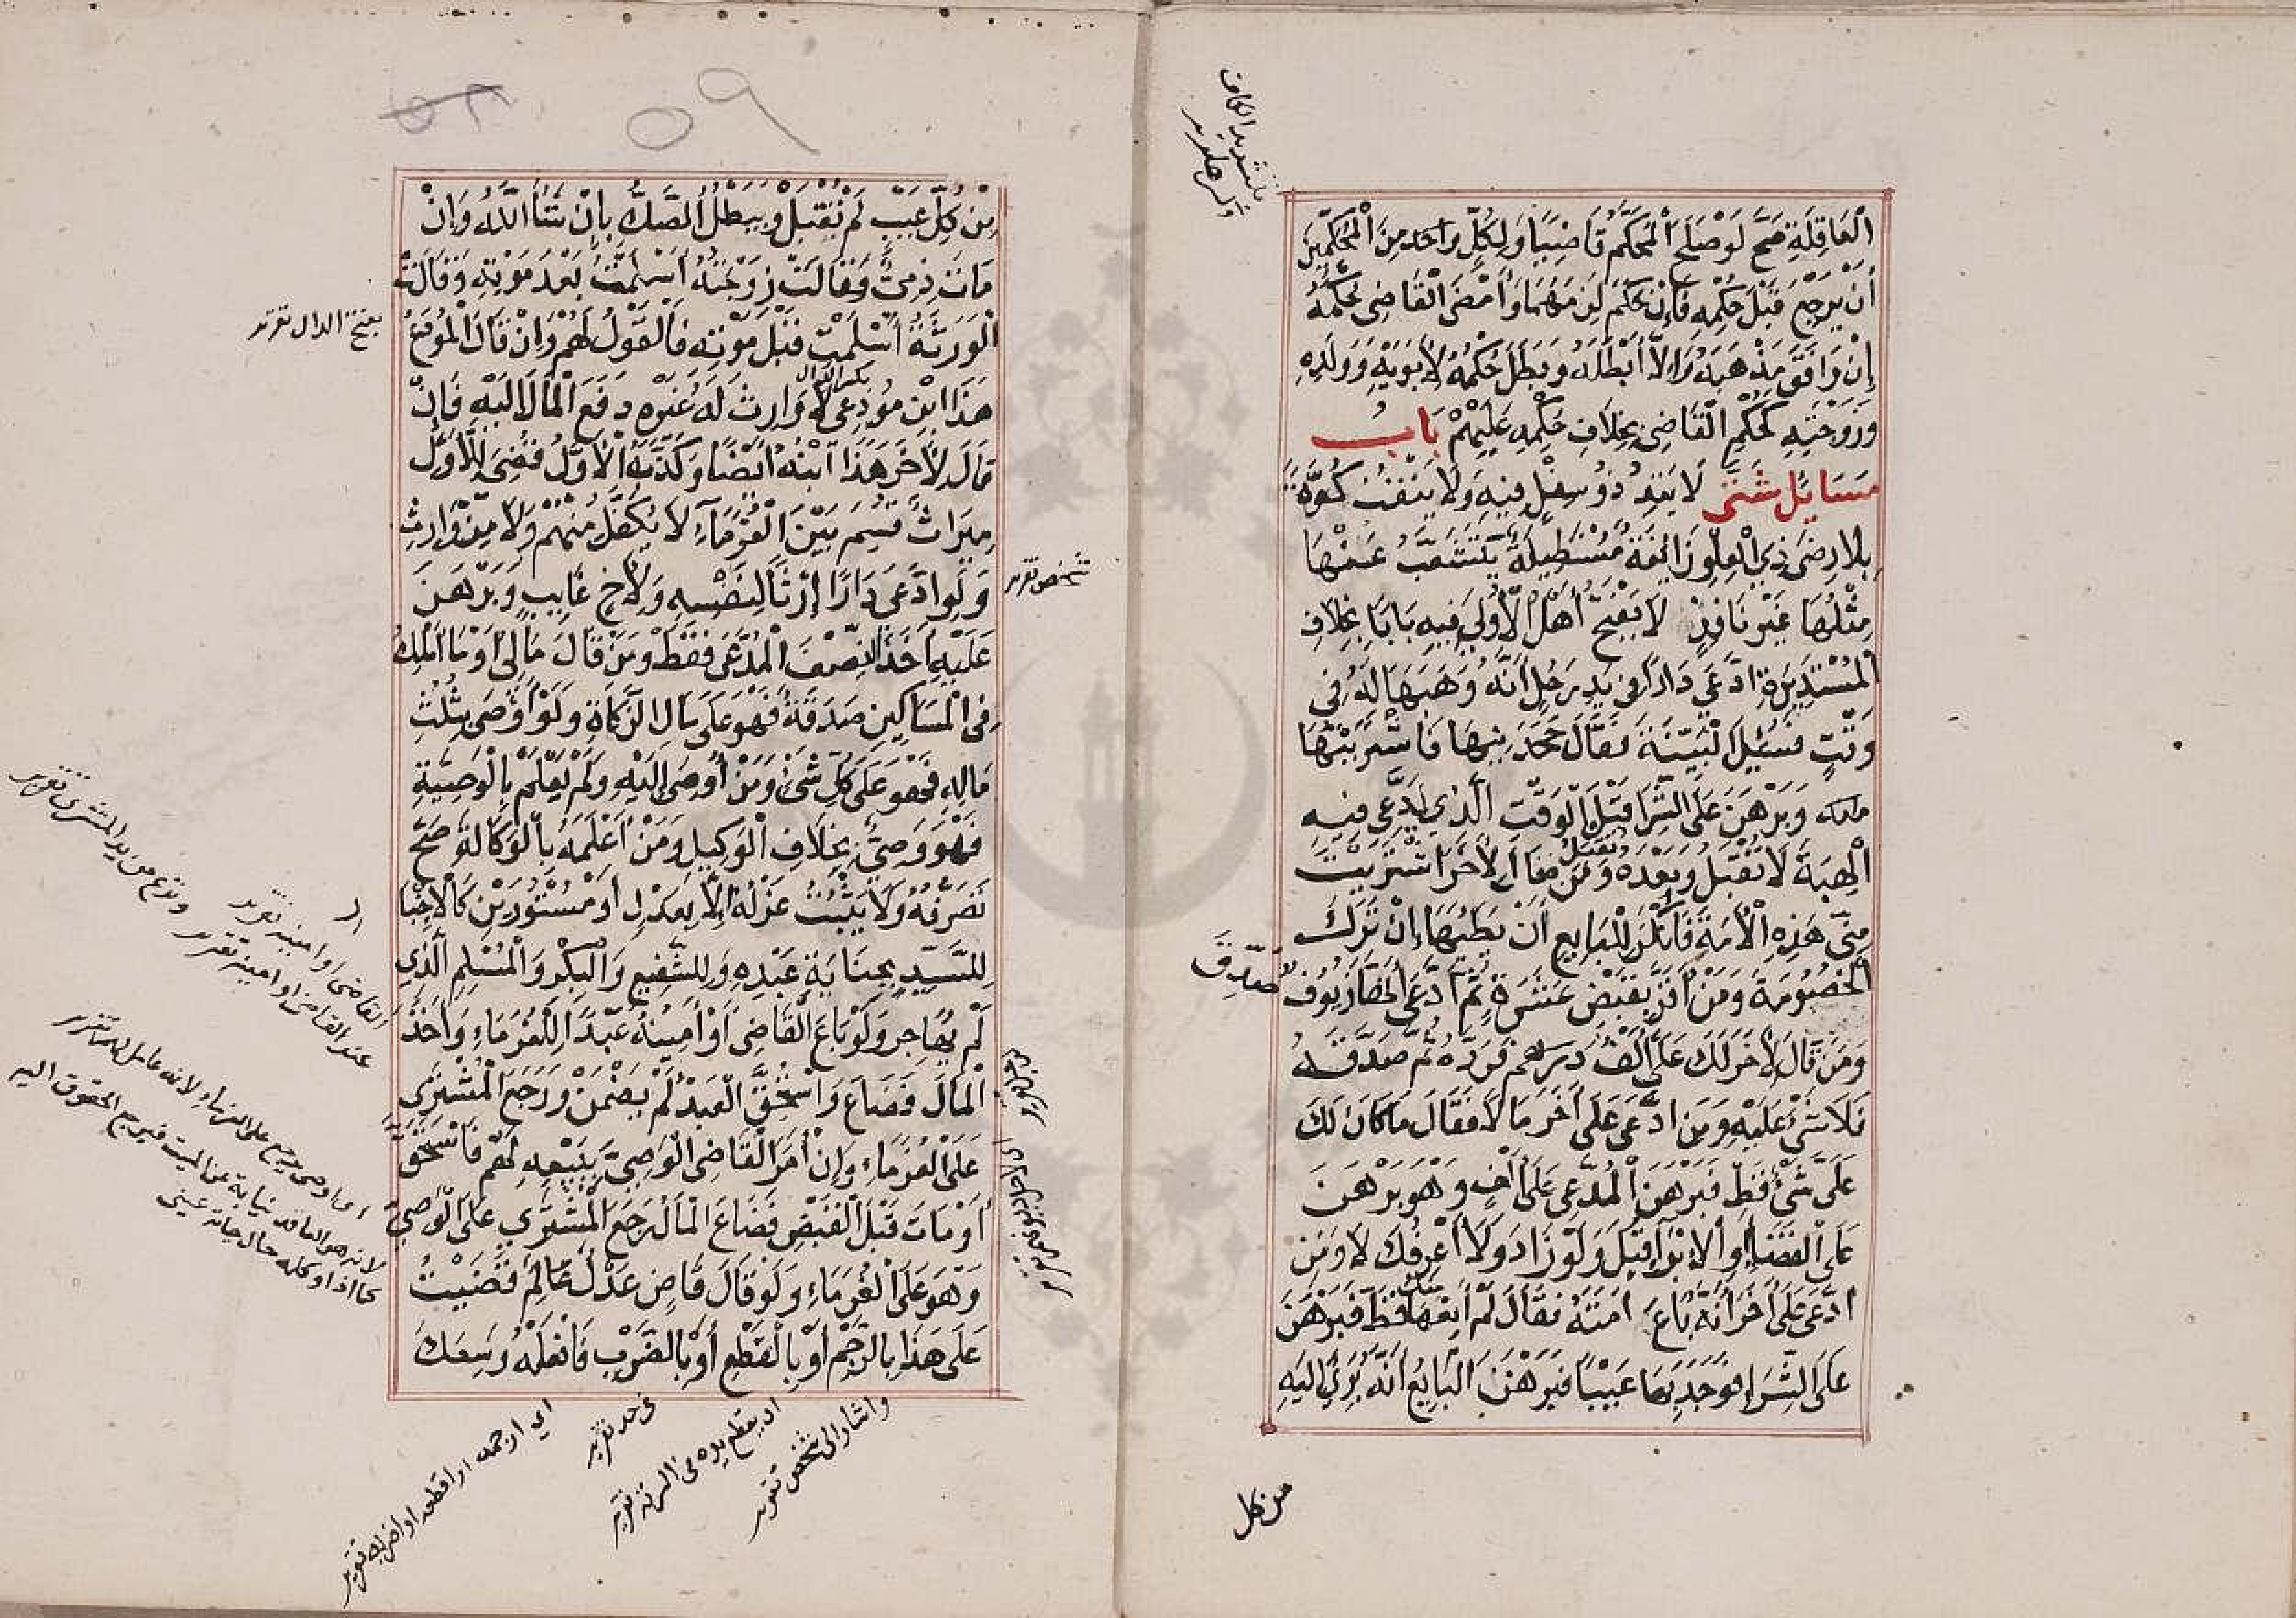 الْعَاقِلَةِ صَحَّ لَوْ صَلَحَ الْمُحَكَّمُ قَاضِيًا وَلِكُلِّ وَاحِدٍ مِنَ الْمُحَكِّمَيْنِ
أَنْ يَرْجِعَ قَبْلَ حُكْمِهِ فَإِنْ حَكَمَ لَزِمَهُمَا وَأَمْضَى الْقَاضِي حُكْمَهُ
إِنْ وَافَقَ مَذْهَبَهُ وَإِلَّا أَبْطَلَهُ وَبَطَلَ حُكْمُهُ لِأَبَوَيْهِ وَوَلَدِهِ
وَزَوْجَتِهِ كَحُكْمِ الْقَاضِي بِخِلَافِ حُكْمِهِ عَلَيْهِمْ بَابُ
مَسَايُل شَتَّى لَا يَتِدُ ذُو سِفْلٍ فِيهِ وَلَا يَنْقُبُ كُوَّةً
بِلَا رِضَى ذِي الْعِلْوِ زَايِغَةٌ مُسْتَطِيلَةٌ يَتَشَعَّبُ عَنْهَا
مِثْلُهَا غَيْرُ نَافِذٍ لَا يَفْتَحُ أَهْلُ الْأُولَى فِيهِ بَابًا بِخِلَافِ
الْمُسْتَدِيرَةِ ادَّعَى دَارًا فِي يَدِ رَجُلٍ أَنَّهُ وَهَبَهَا لَهُ فِي
وَقْتٍ فَسُئِلَ الْبَيِّنَةَ فَقَالَ جَحَدَنِيهَا فَاشْتَرَيْتُهَا
منه وَبَرْهَنَ عَلَى الشِّرَا قَبْلَ الْوَقْتِ الَّذِي يَدَّعِي فِيهِ
الْهِبَةَ لَا تُقْبَلُ وَبَعْدَهُ تُقْبَلُ وَمَنْ قَالَ لِآخَرَ اشْتَرَيْتَ
مِنِّي هَذِهِ الْأَمَةَ فَأَنْكَرَ لِلْبَايِعِ أَنْ يَطَئَهَا إِنْ تَرَكَ
الْخُصُومَةَ وَمَنْ أَقَرَّ بِقَبْضِ عَشَرَةٍ ثُمَّ ادَّعَى أَنَّهَا زُيُوفٌ صُدِّقَ
وَمَنْ قَالَ لِآخَرَ لَكَ عَلَيَّ أَلْفُ دِرْهَمٍ فَرَدَّهُ ثُمَّ صَدَّقَهُ
فَلَا شَيْءَ عَلَيْهِ وَمَنِ ادَّعَى عَلَى آخَرَ مَالًا فَقَالَ مَا كَانَ لَكَ
عَلَيَّ شَيْءٌ قَطُّ فَبَرْهَنَ الْمُدَّعِي عَلَى أَلْفٍ وَهُوَ بَرْهَنَ
عَلَى الْقَضَاءِ أَوِ الْإِبْرَاءِ قُبِلَ وَلَوْ زَادَ وَلَا أَعْرِفُكَ لَا وَمَنِ
ادَّعَى عَلَى آخَرَ أَنَّهُ بَاعَ أَمَتَهُ فَقَالَ لَمْ أَبِعْهَا مِنْكَ قَطُّ فَبَرْهَنَ
عَلَى الشِّرَاءِ فَوَجَدَ بِهَا عَيْبًا فَبَرْهَنَ الْبَايِعُ أَنَّهُ بَرِئَ إِلَيْهِ
من كل
٥٩
مِنْ كُلِّ عَيْبٍ لَمْ تُقْبَلْ وَيَبْطُلُ الصَّكُّ بِإِنْ شَاءَ اللَّهُ وَإِنْ
مَاتَ ذِمِّيٌّ وَقَالَتْ زَوْجَتُهُ أَسْلَمْتُ بَعْدَ مَوْتِهِ وَقَالَتْ
الْوَرَثَةُ أَسْلَمَتْ قَبْلَ مَوْتِهِ فَالْقَوْلُ لَهُمْ وَإِنْ قَالَ الْمُودَعُ
بفتح الدال تقرير
هَذَا ابْنُ مُودِعِي لَا وَارِثَ لَهُ غَيْرُهُ دَفَعَ الْمَالَ إِلَيْهِ فَإِنْ
بكسر الدال
قَالَ لِآخَرَ هَذَا ابْنُهُ أَيْضًا وَكَذَّبَهُ الْأَوَّلُ قُضِيَ لِلْأَوَّلِ
مِيرَاثٌ قُسِمَ بَيْنَ الْغُرَمَاءِ لَا يُكْفَلُ مِنْهُمْ وَلَا مِنْ وَارِثٍ
وَلَوِ ادَّعَى دَارًا إِرْثًا لِنَفْسِهِ وَلِأَخٍ غَايِبٍ وَبَرْهَنَ
عَلَيْهِ أَخَذَ النِّصْفَ الْمُدَّعَى فَقَطْ وَمَنْ قَالَ مَالِي أَوْ مَا أَمْلِكُ
فِي الْمَسَاكِينِ صَدَقَةٌ فَهُوَ عَلَى مَالِ الزَّكَاةِ وَلَوْ أَوْصَى بِثُلُثِ
مَالِهِ فَهُوَ عَلَى كُلِّ شَيْءٍ وَمَنْ أُوصِيَ إِلَيْهِ وَلَمْ يَعْلَمْ بِالْوَصِيَّةِ
فَهُوَ وَصِيٌّ بِخِلَافِ الْوَكِيلِ وَمَنْ أَعْلَمَهُ بِالْوَكَالَةِ صَحَّ
تَصَرُّفُهُ وَلَا يَثْبُتُ عَزْلُهُ إِلَّا بِعَدْلٍ أَوْ مَسْتُورَيْنِ كَالْإِخْبَا
لِلسَّيِّدِ بِجِنَايَةِ عَبْدِهِ وَلِلشَّفِيعِ وَالْبِكْرِ وَالْمُسْلِمِ الَّذِي
لَمْ يُهَاجِرْ وَلَوْ بَاعَ الْقَاضِي أَوْ أَمِينُهُ عَبْدًا لِلْغُرَمَاءِ وَأَخَذَ
الْمَالَ فَضَاعَ وَاسْتُحِقَّ الْعَبْدُ لَمْ يَضْمَنْ وَرَجَعَ الْمُشْتَرِي
عَلَى الْغُرَمَاءِ وَإِنْ أَمَرَ الْقَاضِي الْوَصِيَّ بِبَيْعِهِ لَهُمْ فَاسْتُحِقَّ
أَوْ مَاتَ قَبْلَ الْقَبْضِ فَضَاعَ الْمَالُ رَجَعَ الْمُشْتَرِي عَلَى الْوَصِيِّ
وَهُوَ عَلَى الْغُرَمَاءِ وَلَوْ قَالَ قَاضٍ عَدْلٌ عَالِمٌ قَضَيْتُ
عَلَى هَذَا بِالرَّجْمِ أَوْ بِالْقَطْعِ أَوْ بِالضَّرْبِ فَافْعَلْهُ وَسِعَكَ
القاضى او امينه تقرير
عند القاضى او امينه تقرير
اى الوصى يرجع على الغرماء لانه عامل لهم
لانه هو العاقد نيابة عن الميت فيرجع الحقوق اليه
كما اذا وكله حال حياته عينى
واشار الى شخص تقرير
فى حد تقرير
اى ارجمه او اقطعه او اضربه تقرير